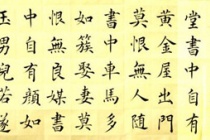 堂書中自有
黃金屋出門
莫恨無人隨
書中車馬多
如簇娶妻莫
恨無良媒書
中自有顏如
玉男兒若遂